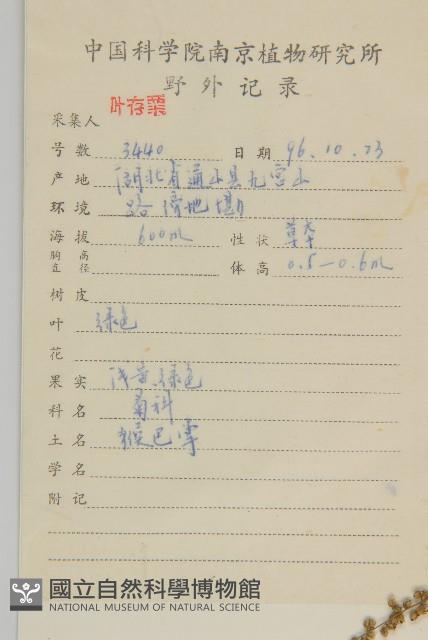 中国科学院南京植物研究所
野外记录
采集人 叶存粟
号数 3440 日期 96.10.23
产地 湖北省通山县九宫山
环境 路 地
海拔 600m 性状 草本
胸高直径 体高 0.5-0.6m
树皮
叶 绿色
花
果实 浅黄绿色
科名 菊科
土名
学名
附记
國立自然科學博物館
NATIONAL MUSEUM OF NATURAL SCIENCE